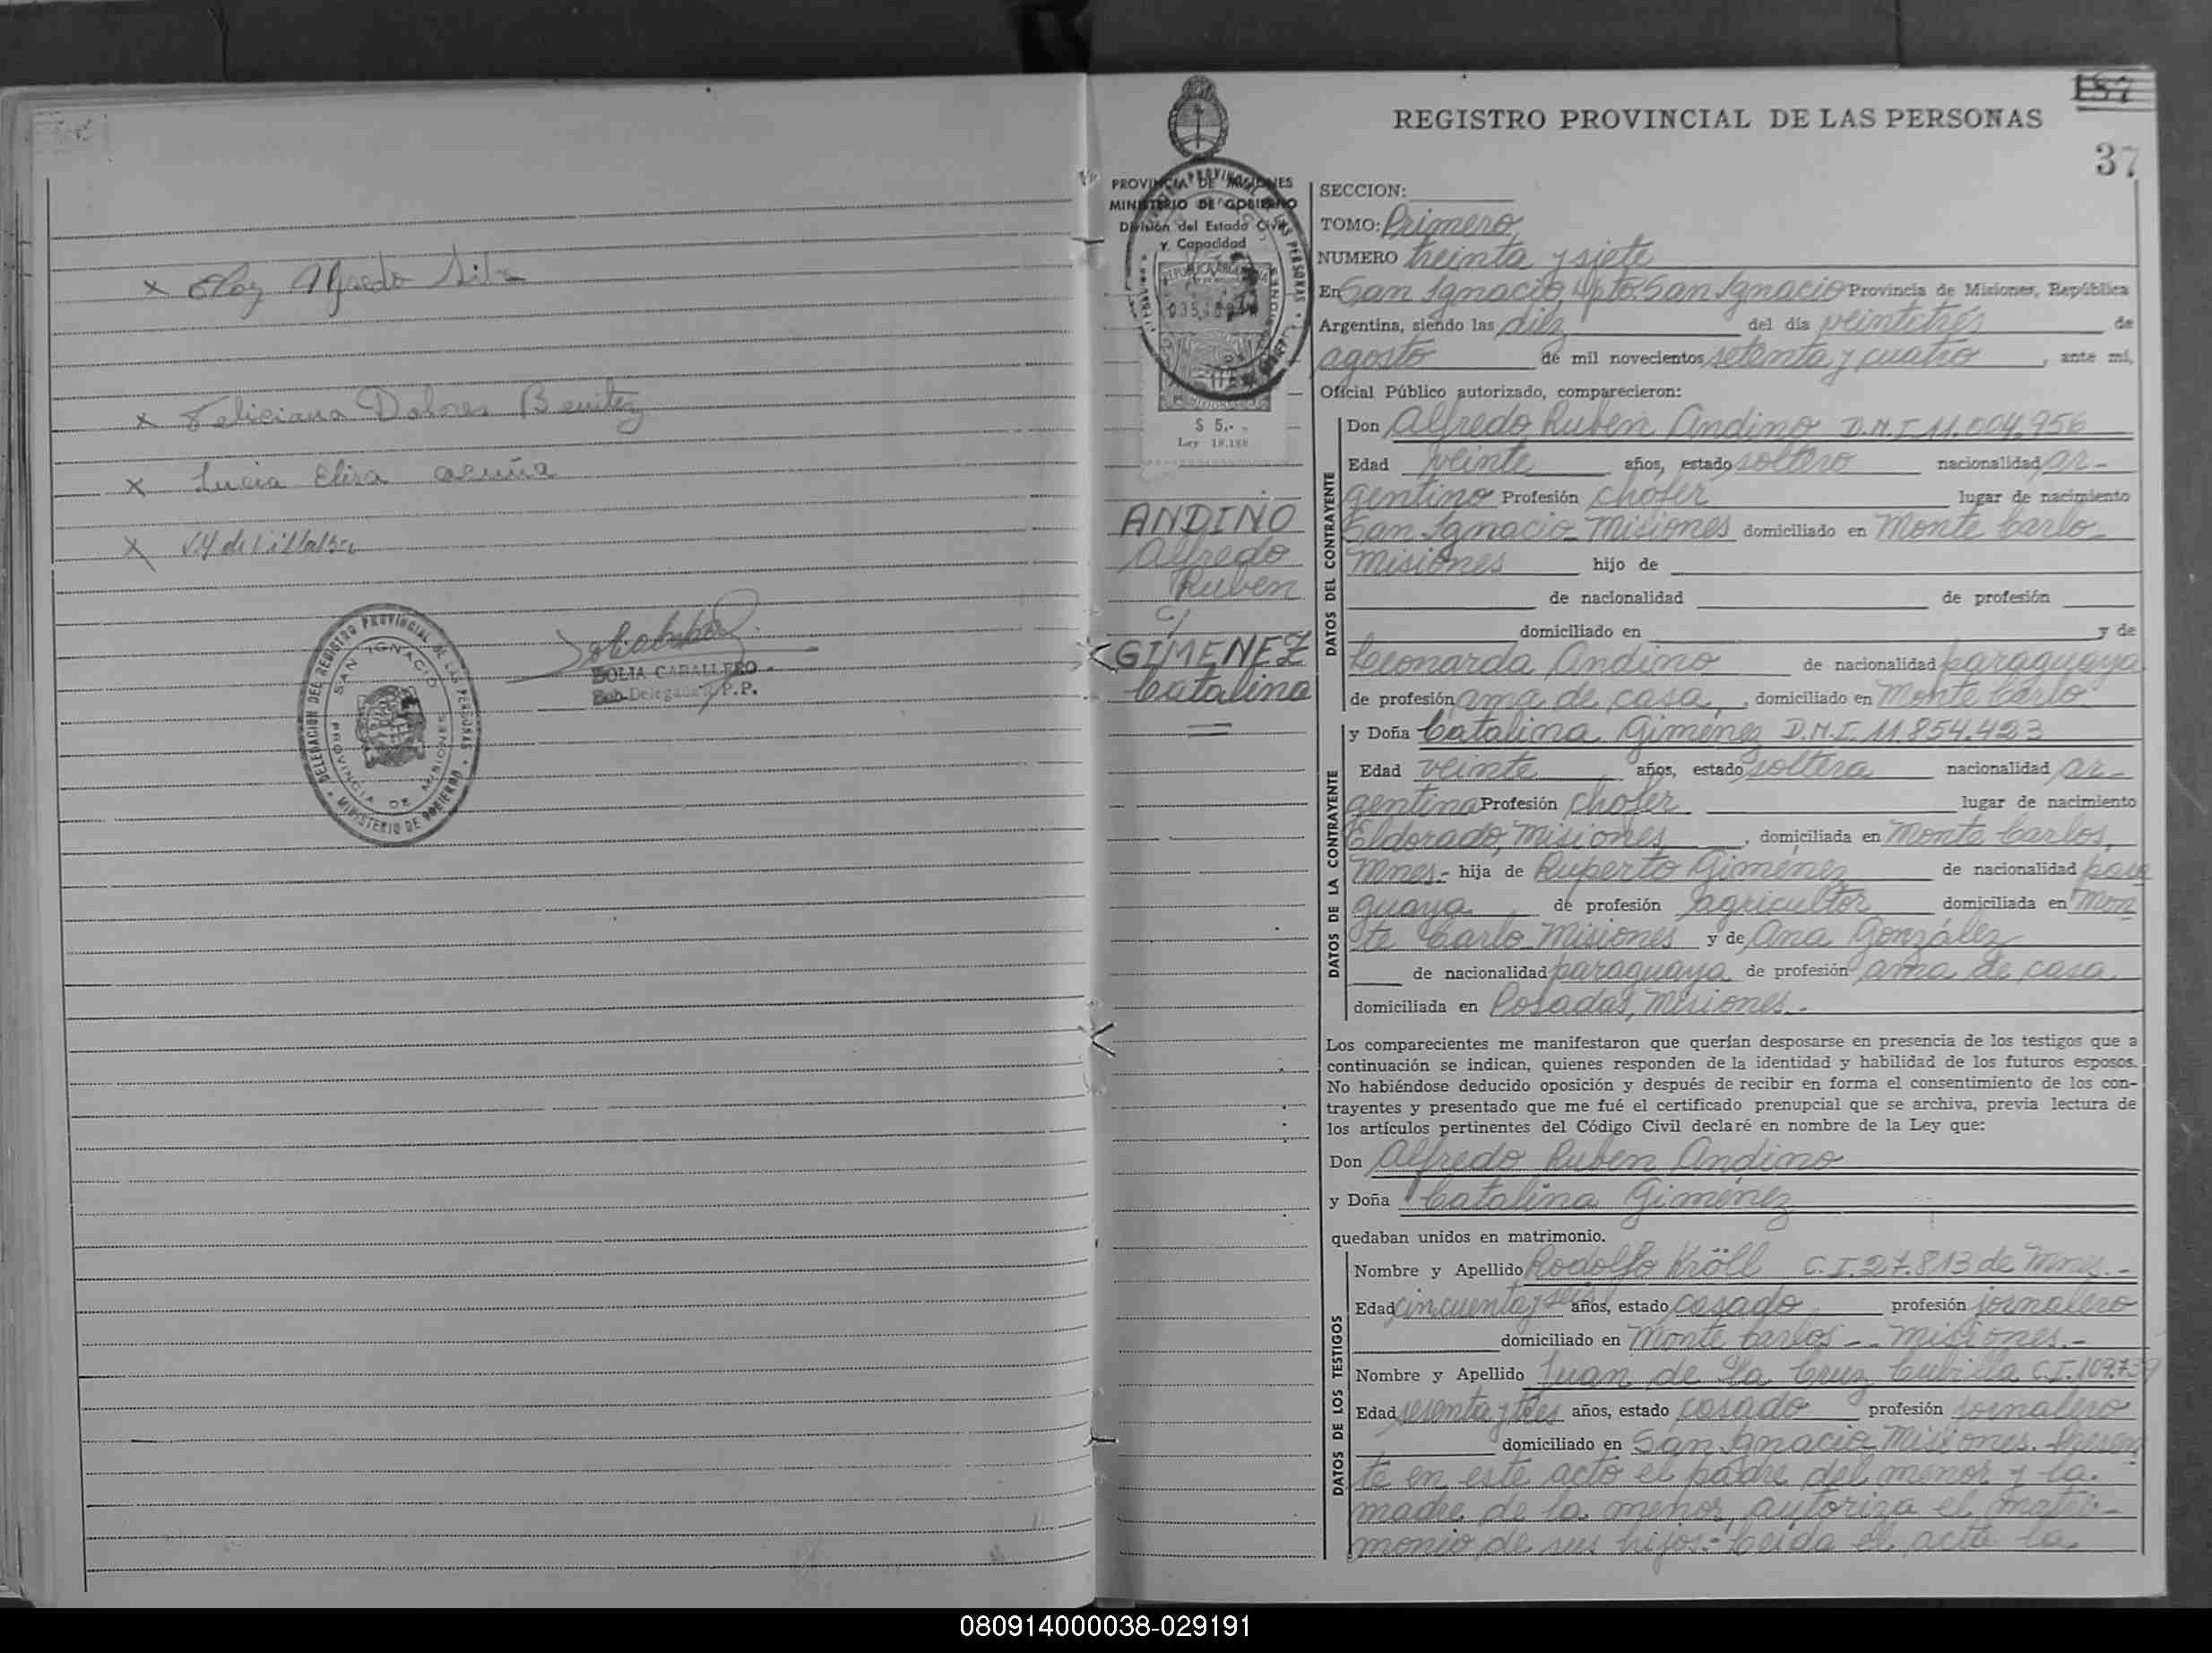 x Eloy Alfredo Silva
x Feliciana Dolores Benitez
x Lucia Elisa acuña
x de Villalba
DELEGACION DEL REGISTRO PROVINCIAL DE LAS PERSONAS
SAN IGNACIO
PROVINCIA DE MISIONES
MINISTERIO DE GOBIERNO
CABALLERO
Sub-Delegada R.P.P.
157
REGISTRO PROVINCIAL DE LAS PERSONAS
37
PROVINCIA DE MISIONES
MINISTERIO DE GOBIERNO
División del Estado Civil
y Capacidad
REPUBLICA ARGENTINA
$ 5.-
Ley 18.188
ANDINO
Alfredo
Ruben
c/
GIMENEZ
Catalina
SECCION:
TOMO: Primero
NUMERO treinta y siete
En San Ignacio, Dpto. San Ignacio Provincia de Misiones, República
Argentina, siendo las diez del día veintitrés de
agosto de mil novecientos setenta y cuatro, ante mí,
Oficial Público autorizado, comparecieron:
DATOS DEL CONTRAYENTE
Don Alfredo Ruben Andino D.N.I 11.004.956
Edad veinte años, estado soltero nacionalidad ar-
gentino Profesión chofer lugar de nacimiento
San Ignacio Misiones domiciliado en Monte Carlo
Misiones hijo de
de nacionalidad de profesión
domiciliado en y de
Leonarda Andino de nacionalidad paraguaya
de profesión ama de casa, domiciliado en Monte Carlo
DATOS DE LA CONTRAYENTE
y Doña Catalina Giménez D.N.I. 11.854.423
Edad veinte años, estado soltera nacionalidad ar-
gentina Profesión chofer lugar de nacimiento
Eldorado, Misiones, domiciliada en Monte Carlos,
Mnes.- hija de Ruperto Giménez de nacionalidad para
guaya de profesión agricultor domiciliada en Mon
te Carlo Misiones y de Ana González
de nacionalidad paraguaya de profesión ama de casa
domiciliada en Posadas, Misiones.-
Los comparecientes me manifestaron que querían desposarse en presencia de los testigos que a
continuación se indican, quienes responden de la identidad y habilidad de los futuros esposos.
No habiéndose deducido oposición y después de recibir en forma el consentimiento de los con-
trayentes y presentado que me fué el certificado prenupcial que se archiva, previa lectura de
los artículos pertinentes del Código Civil declaré en nombre de la Ley que:
Don Alfredo Ruben Andino
y Doña Catalina Giménez
quedaban unidos en matrimonio.
DATOS DE LOS TESTIGOS
Nombre y Apellido Rodolfo Kröll C.I. 27.813 de Mnes.-
Edad cincuenta y seis años, estado casado profesión jornalero
domiciliado en Monte Carlos -- Misiones.-
Nombre y Apellido Juan de La Cruz Cubilla C.I. 109.739
Edad sesenta y tres años, estado casado profesión jornalero
domiciliado en San Ignacio Misiones. Presen
te en este acto el padre del menor y la
madre de la menor, autoriza el matri-
monio de sus hijos.- Leída el acta la
080914000038-029191